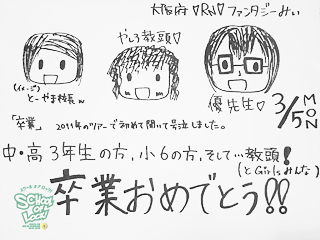 大阪府♡RN♡ファンタジーみぃ
やしろ教頭↓
(イメージ)
とーやま校長
優先生♡
3/5 MON
「卒業」2011年のツアーで初めて聞いて号泣しました。
中・高3年生の方、小6の方、そして…教頭!
(とGirlsみんな)
卒業おめでとう!!
SCHOOL OF LOCK!